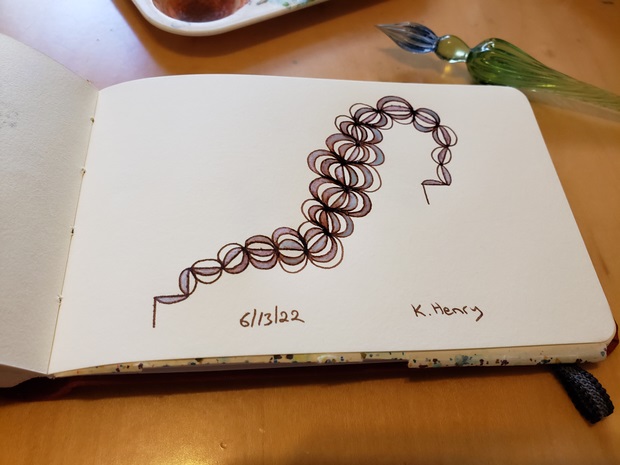 6/13/22
K. Henry